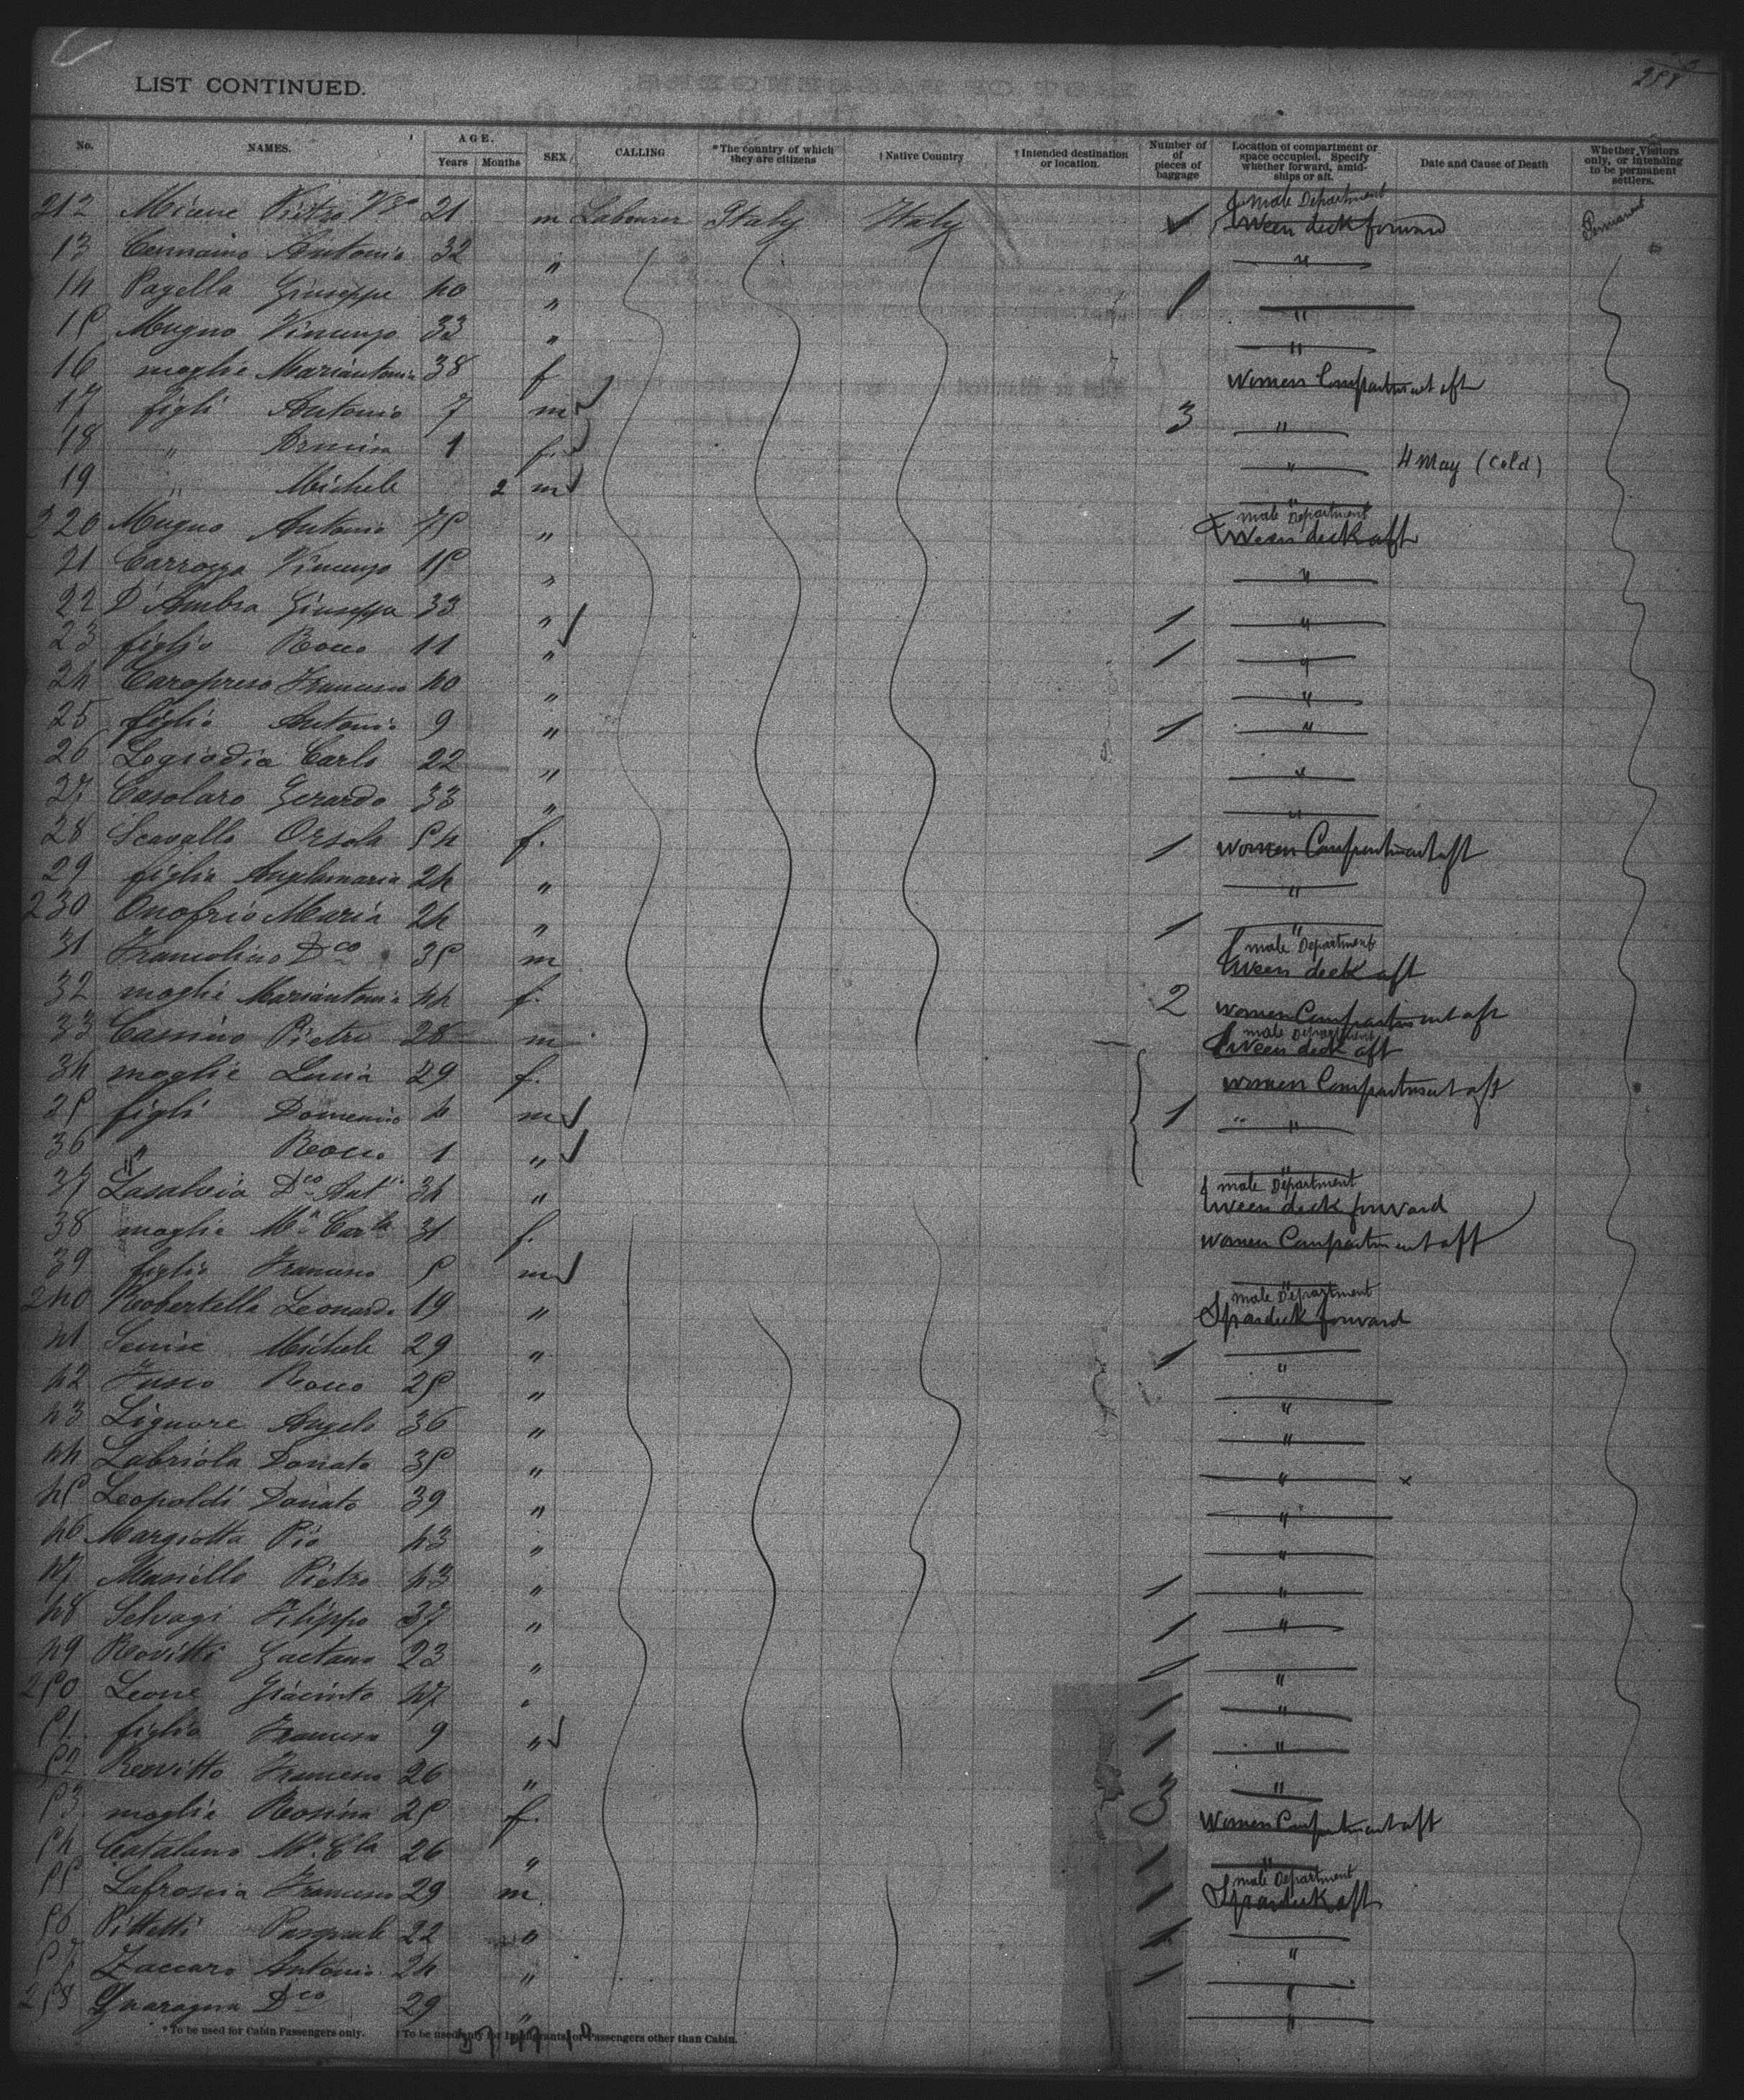 LIST CONTINUED.
No. NAMES. AGE. Years Months SEX CALLING *The country of which they are citizens †Native Country †Intended destination or location. Number of pieces of baggage Location of compartment or space occupied. Specify whether forward, amidships or aft. Date and Cause of Death Whether Visitors only, or intending to be permanent settlers.
212 Pietro 21 m Labourer Italy Italy male Department tween deck forward Permanent
13 Antonio 32 " "
14 Pagella Giuseppe 40 " 1 "
15 Mugno Vincenzo 33 " "
16 moglie Mariantonia 38 f women Compartment aft
17 figli Antonio 7 m 3 "
18 " 1 f. " 4 May (Cold)
19 " Michele 2 m "
220 Mugno Antonio 75 " male Department tween deck aft
21 Carrozza Vincenzo 15 " "
22 D'Ambra Giuseppe 33 " 1 "
23 figlio Rocco 11 " 1 "
24 Caropreso Francesco 40 " "
25 figlio Antonio 9 " 1 "
26 Carlo 22 " "
27 Casolaro Gerardo 33 " "
28 Scavallo Orsola 54 f. 1 women Compartment aft
29 figlia Anglamaria 24 " "
230 Onofrio Maria 24 " 1 "
31 Francolino Dco 35 m male Department tween deck aft
32 moglie Mariantonia 44 f. 2 women Compartment aft
33 Pietro 28 m male Department tween deck aft
34 moglie Lucia 29 f. women Compartment aft
35 figli Domenico 4 m 1 " "
36 " Rocco 1 " "
37 Lasalvia Dco Anto 34 " male Department tween deck forward
38 moglie Ma Carla 31 f. women Compartment aft
39 figlio Francesco 5 m "
240 Robertella Leonardo 19 " male Department Spardeck forward
41 Senise Michele 29 " 1 "
42 Fusco Rocco 25 " "
43 Liguore Angelo 36 " "
44 Labriola Donato 35 " " x
45 Leopoldi Donato 39 " "
46 Margiotta Pio 43 " "
47 Masiello Pietro 43 " 1 "
48 Selvagi Filippo 37 " 1 "
49 Rovitti Gaetano 23 " 1 "
250 Leone Giacinto 47 " 1 "
51 figlio Francesco 9 " 1 "
52 Rovitto Francesco 26 " 3 "
53 moglie Rosina 25 f. Women Compartment aft
54 Catalano Ma Cla 26 " 1 "
55 Lafroscia Francesco 29 m. 1 male Department Spardeck aft
56 Pittetti Pasquale 22 " 1 "
57 Zaccaro Antonio 24 " 1 "
258 Guaragna Dco 29 " "
*To be used for Cabin Passengers only. †To be used only for Immigrants, or Passengers other than Cabin.